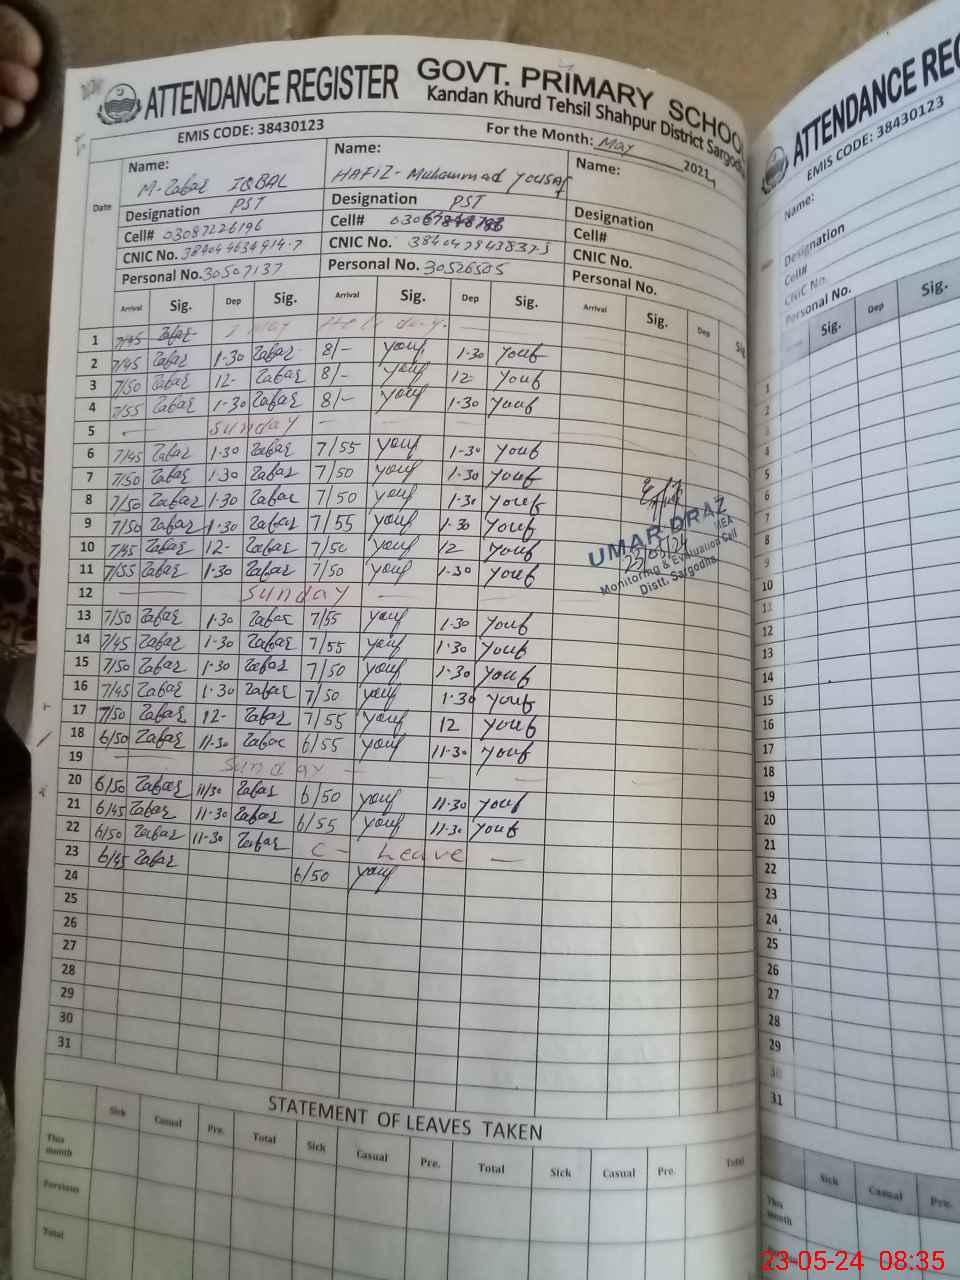 ATTENDANCE REGISTER GOVT. PRIMARY SCHOOL
Kandan Khurd Tehsil Shahpur District Sargodha
EMIS CODE: 38430123 For the Month: May 2021
Date Name: Name: Name:
M-Zafar IQBAL HAFIZ-Muhammad YOUSAF
Designation PST Designation PST Designation
Cell# 03087226196 Cell# Cell#
CNIC No. CNIC No. CNIC No.
Personal No. 30507137 Personal No. 30526505 Personal No.
Arrival Sig. Dep Sig. Arrival Sig. Dep Sig. Arrival Sig. Dep Sig
1 7/45 Zafar 1 May Holiday.
2 7/45 Zafar 1-30 Zafar 8/- youf 1-30 Youf
3 7/50 Zafar 12- Zafar 8/- youf 12 Youf
4 7/55 Zafar 1-30 Zafar 8/- youf 1-30 Youf
5 — Sunday
6 7/45 Zafar 1-30 Zafar 7/55 youf 1-30 Youf
7 7/50 Zafar 1-30 Zafar 7/50 youf 1-30 Youf
8 7/50 Zafar 1-30 Zafar 7/50 youf 1-30 Youf
9 7/50 Zafar 1-30 Zafar 7/55 youf 1-30 Youf
10 7/45 Zafar 12- Zafar 7/50 youf 12 Youf
11 7/55 Zafar 1-30 Zafar 7/50 youf 1-30 Youf
12 — Sunday —
13 7/50 Zafar 1-30 Zafar 7/55 youf 1-30 Youf
14 7/45 Zafar 1-30 Zafar 7/55 youf 1-30 Youf
15 7/50 Zafar 1-30 Zafar 7/50 youf 1-30 Youf
16 7/45 Zafar 1-30 Zafar 7/50 youf 1-30 Youf
17 7/50 Zafar 12- Zafar 7/55 youf 12 Youf
18 6/50 Zafar 11-30 Zafar 6/55 youf 11-30 Youf
19 — Sunday —
20 6/50 Zafar 11/30 Zafar 6/50 youf 11-30 Youf
21 6/45 Zafar 11-30 Zafar 6/55 youf 11-30 Youf
22 6/50 Zafar 11-30 Zafar C- Leave —
23 6/45 Zafar 6/50 youf
24
25
26
27
28
29
30
31
UMAR DRAZ
MEA
23/05/24
Monitoring & Evaluation Cell
Distt. Sargodha
STATEMENT OF LEAVES TAKEN
Sick Casual Pre. Total Sick Casual Pre. Total Sick Casual Pre. Total
This month
Previous
Total
ATTENDANCE REG
EMIS CODE: 38430123
Name:
Designation
Cell#
CNIC No.
Personal No.
Sig. Dep Sig.
1
2
3
4
5
6
7
8
9
10
11
12
13
14
15
16
17
18
19
20
21
22
23
24
25
26
27
28
29
30
31
Sick Casual Pre.
This month
23-05-24 08:35